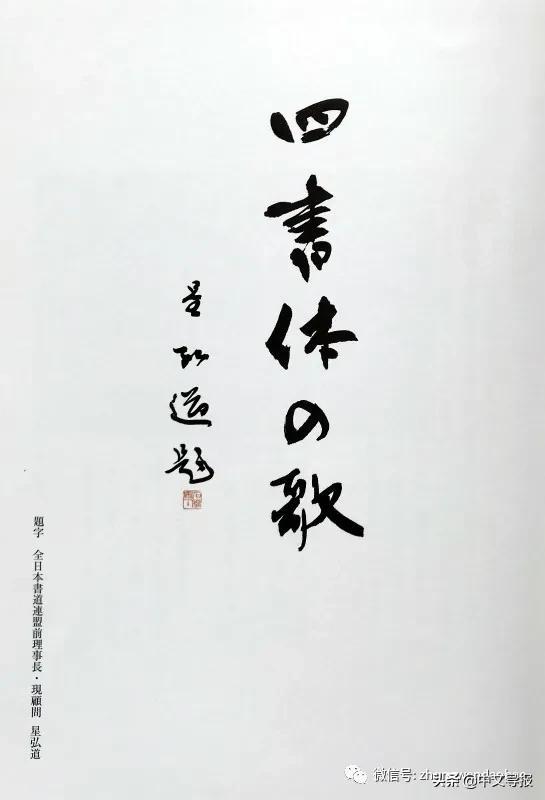 四書体の歌
星弘道題
題字　全日本書道連盟前理事長・現顧問　星弘道
微信号: zhongwendaobao
头条 @中文导报